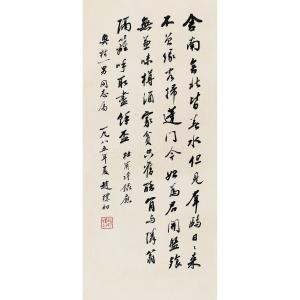 舍南舍北皆春水但見羣鷗日々來
不曾緣客掃蓬門今始為君開盤飧
無兼味樽酒家貧只舊醅肯與隣翁
隔籬呼取盡餘杯 杜甫詩錄應
一男同志属
一九八五年夏 趙樸初